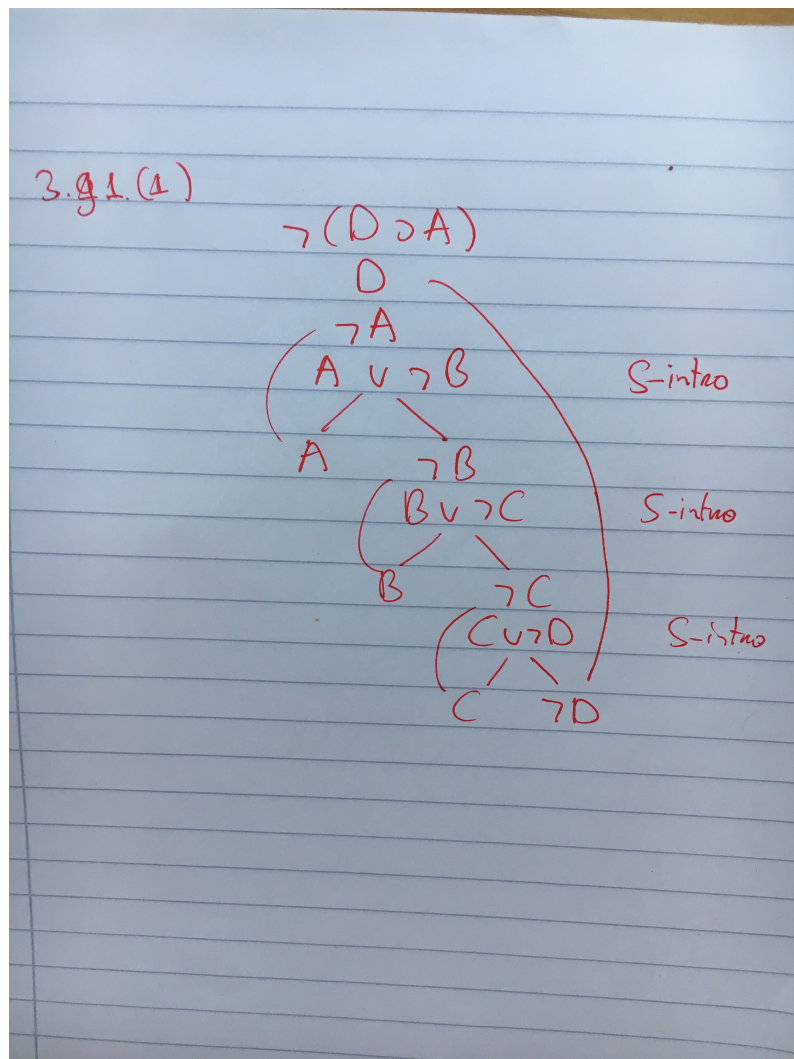 3.91.(1)
¬(D ⊃ A)
D
¬A
A ∨ ¬B S-intro
A ¬B
B ∨ ¬C S-intro
B ¬C
C ∨ ¬D S-intro
C ¬D